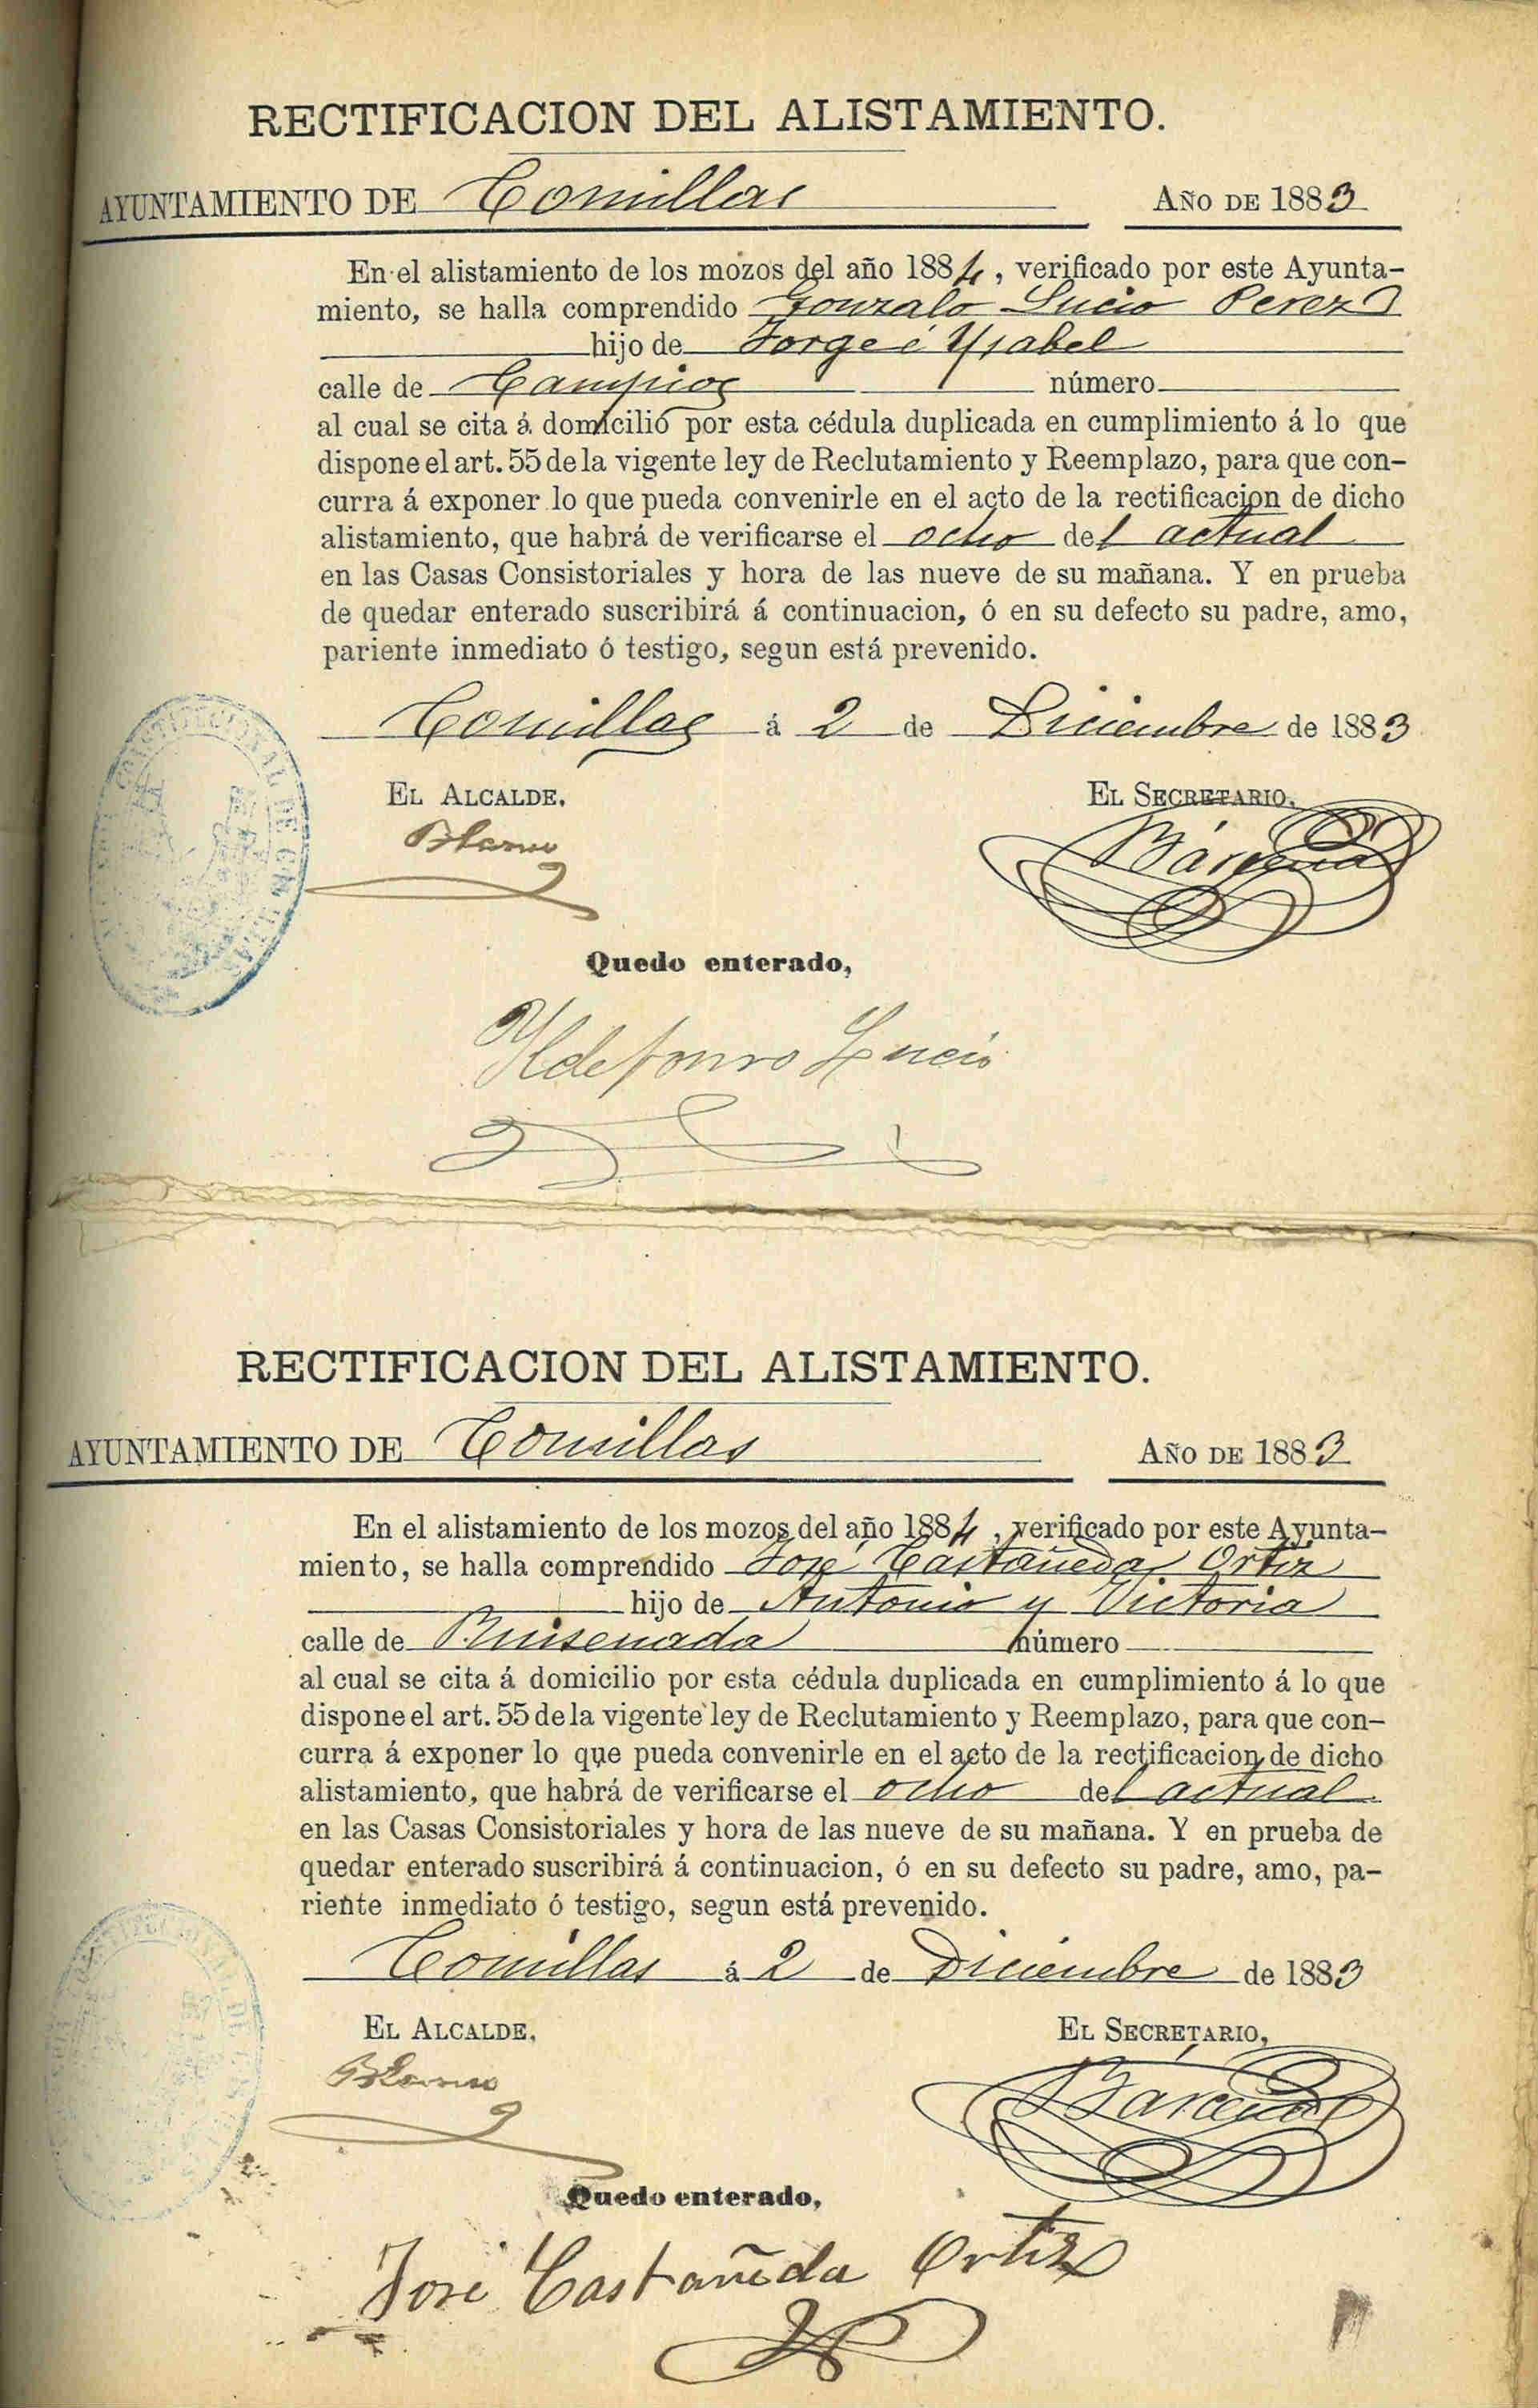 RECTIFICACION DEL ALISTAMIENTO.
AYUNTAMIENTO DE Comillas AÑO DE 1883
En el alistamiento de los mozos del año 1884, verificado por este Ayunta-
miento, se halla comprendido Gonzalo Lucio Perez
hijo de Jorge é Ysabel
calle de Campios número
al cual se cita á domicilio por esta cédula duplicada en cumplimiento á lo que
dispone el art. 55 de la vigente ley de Reclutamiento y Reemplazo, para que con-
curra á exponer lo que pueda convenirle en el acto de la rectificacion de dicho
alistamiento, que habrá de verificarse el ocho del actual
en las Casas Consistoriales y hora de las nueve de su mañana. Y en prueba
de quedar enterado suscribirá á continuacion, ó en su defecto su padre, amo,
pariente inmediato ó testigo, segun está prevenido.
Comillas á 2 de Diciembre de 1883
EL ALCALDE, EL SECRETARIO,
Bárcena
Quedo enterado,
Yldefonso Lucio
RECTIFICACION DEL ALISTAMIENTO.
AYUNTAMIENTO DE Comillas AÑO DE 1883
En el alistamiento de los mozos del año 1884, verificado por este Ayunta-
miento, se halla comprendido José Castañeda Ortiz
hijo de Antonio y Victoria
calle de Ruisenada número
al cual se cita á domicilio por esta cédula duplicada en cumplimiento á lo que
dispone el art. 55 de la vigente ley de Reclutamiento y Reemplazo, para que con-
curra á exponer lo que pueda convenirle en el acto de la rectificacion de dicho
alistamiento, que habrá de verificarse el ocho del actual
en las Casas Consistoriales y hora de las nueve de su mañana. Y en prueba de
quedar enterado suscribirá á continuacion, ó en su defecto su padre, amo, pa-
riente inmediato ó testigo, segun está prevenido.
Comillas á 2 de Diciembre de 1883
EL ALCALDE, EL SECRETARIO,
Bárcena
Quedo enterado,
José Castañeda Ortiz